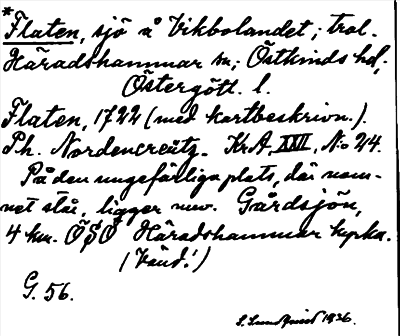 *
Flaten, sjö å Vikbolandet; trol.
Häradshammar sn; Östkinds hd,
Östergötl. l.
Flaten, 1722 (med kortbeskrivn.).
Ph. Nordencreütz. Kr.A, XXII, No 24.
På den ungefärliga plats, där nam-
net står, ligger nuv. Gårdsjön,
4 km. ÖSÖ Häradshammar kyrka.
(Vänd!)
G. 56.
S. Sundquist 1936.